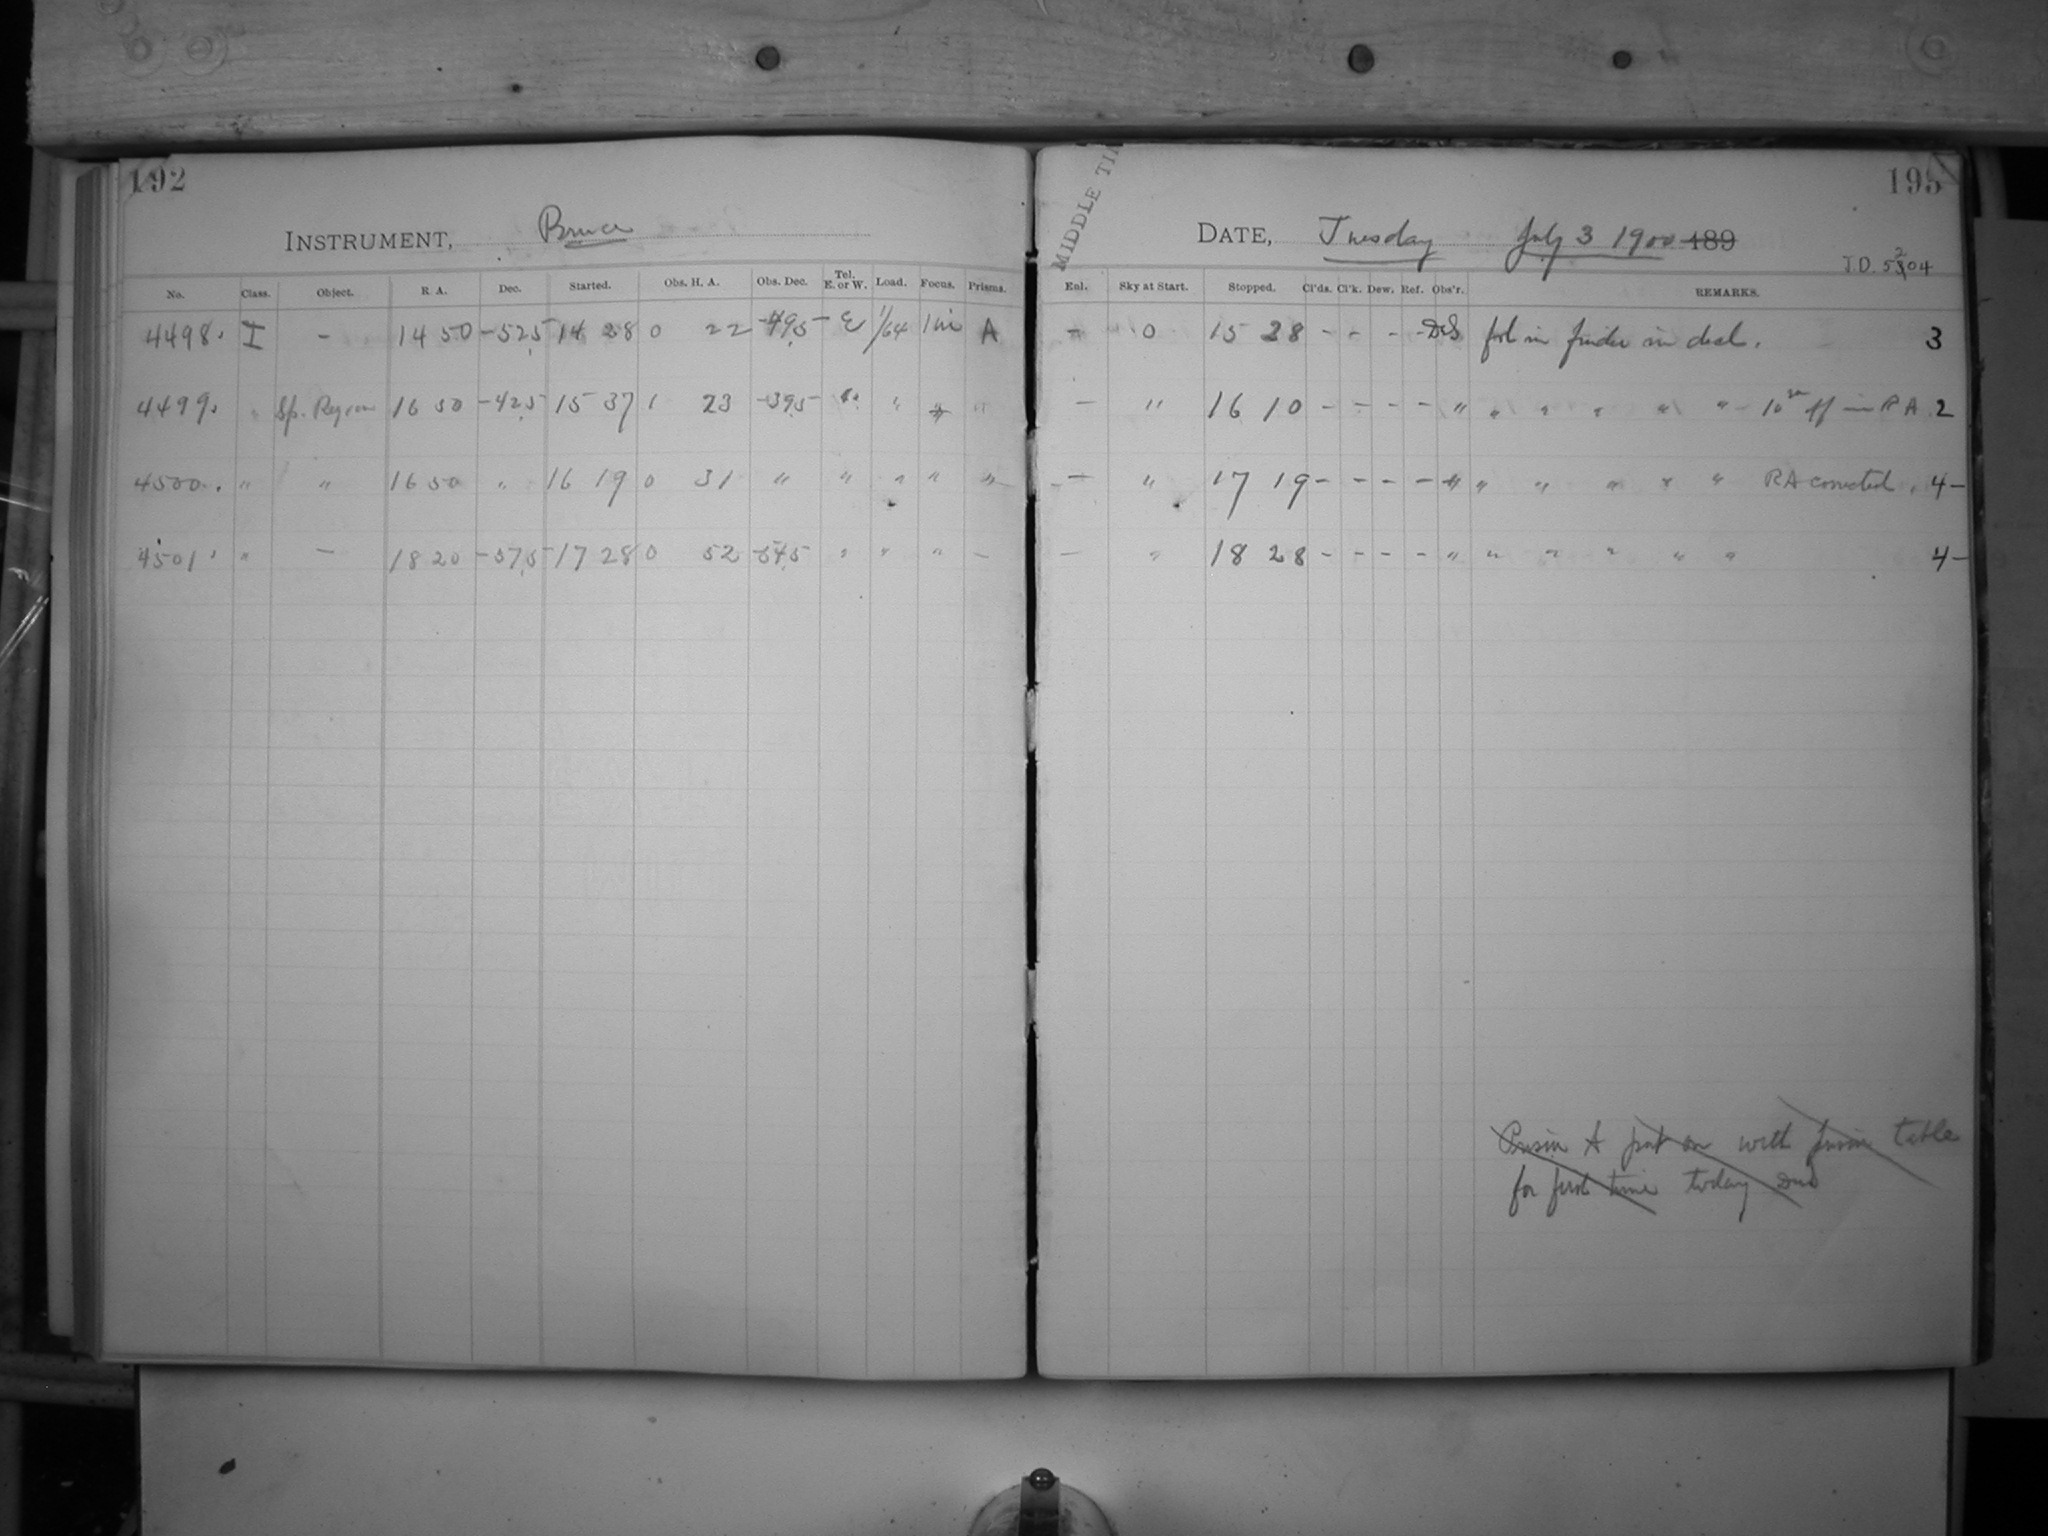 192
INSTRUMENT, Bruce
No. Class. Object. R. A. Dec. Started. Obs. H. A. Obs. Dec. Tel. E. or W. Load. Focus. Prisms.
4498. I - 14 50 -52,5 14 28 0 22 -49,5 E 1/64 1 in A
4499. " Sp. Region 16 50 -42,5 15 37 1 23 -39,5 " " " "
4500. " " 16 50 " 16 19 0 31 " " " " "
4501. " - 18 20 -57,5 17 28 0 52 -54,5 " " " -
MIDDLE TI
195
DATE, Tuesday July 3 1900 189
J.D. 5204
Enl. Sky at Start. Stopped. Cl'ds. Cl'k. Dew. Ref. Obs'r. REMARKS.
- 0 15 28 - - - - in finder in decl. 3
- " 16 10 - - - - " " " " " " - 10m off in RA 2
- " 17 19 - - - - " " " " " " RA corrected. 4-
- " 18 28 - - - - " " " " " " 4-
Prism A put on with prism table
for first time today